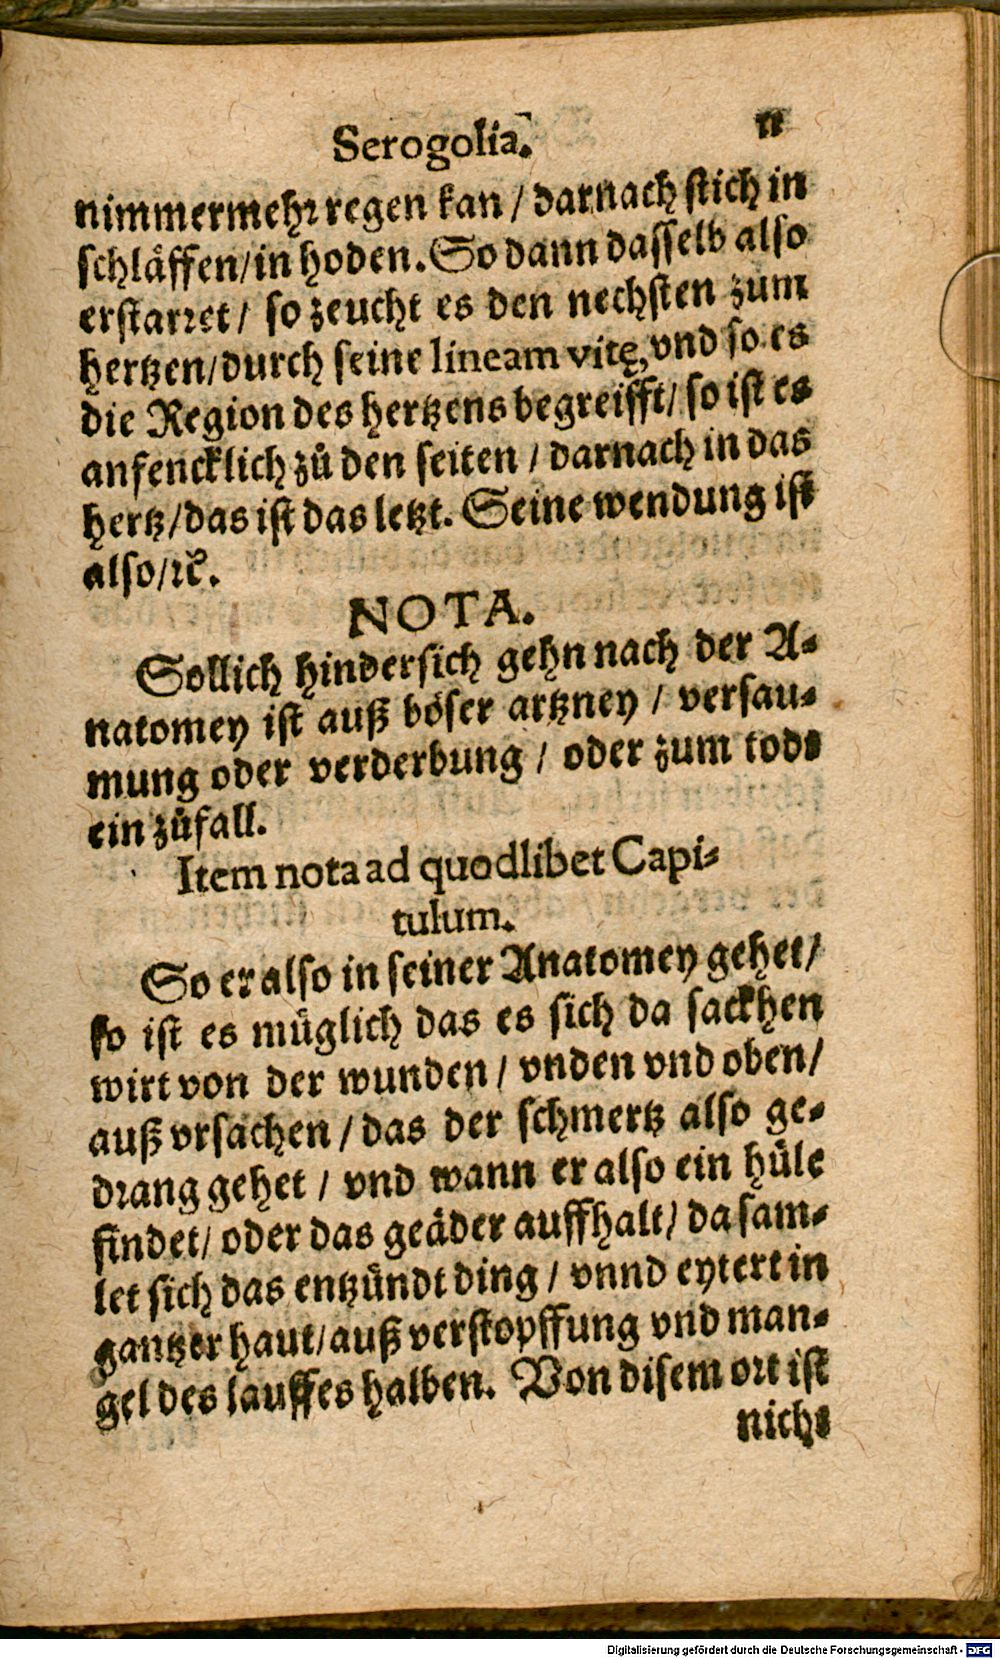 Serogolia. 11
nimmermehr regen kan / darnach stich in
schläffen / in hoden. So dann dasselb also
erstarret / so zeucht es den nechsten zum
hertzen / durch seine lineam vitę, vnd so es
die Region des hertzens begreifft / so ist es
anfencklich zů den seiten / darnach in das
hertz / das ist das letzt. Seine wendung ist
also / ꝛc̃.
NOTA.
Sollich hindersich gehn nach der A-
natomey ist auß böser artzney / versau-
mung oder verderbung / oder zum tods
ein zůfall.
Item nota ad quodlibet Capi-
tulum.
So er also in seiner Anatomey gehet /
so ist es müglich das es sich da sackhen
wirt von der wunden / vnden vnd oben /
auß vrsachen / das der schmertz also ge-
drang gehet / vnd wann er also ein hüle
findet / oder das geäder auffhalt / da sam-
let sich das entzündt ding / vnnd eytert in
gantzer haut / auß verstopffung vnd man-
gel des lauffes halben. Von disem ort ist
nichs
Digitalisierung gefördert durch die Deutsche Forschungsgemeinschaft - DFG